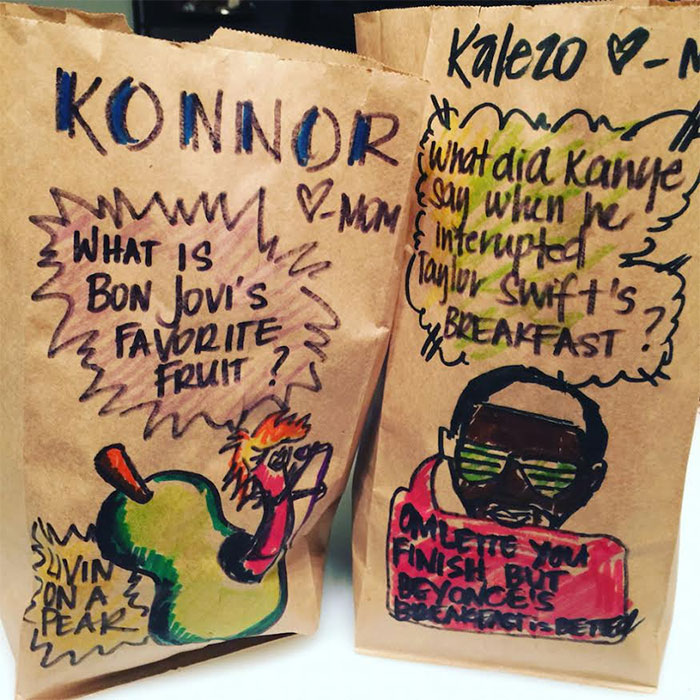 KONNOR
♡-MOM
WHAT IS
BON JOVI'S
FAVORITE
FRUIT?
LIVIN
ON A
PEAR
Kalezo ♡-M
What did Kanye
say when he
interupted
Taylor Swift's
BREAKFAST?
OMLETTE YOU
FINISH BUT
BEYONCE'S
BREAKFAST is BETTER